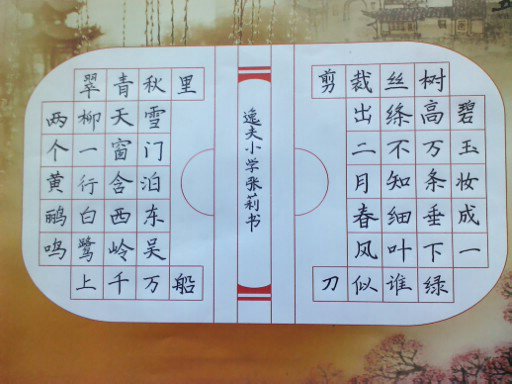 碧玉妆成一
树高万条垂下绿
丝绦不知细叶谁
裁出二月春风似
剪刀
逸夫小学张莉书
两个黄鹂鸣
翠柳一行白鹭上
青天窗含西岭千
秋雪门泊东吴万
里船